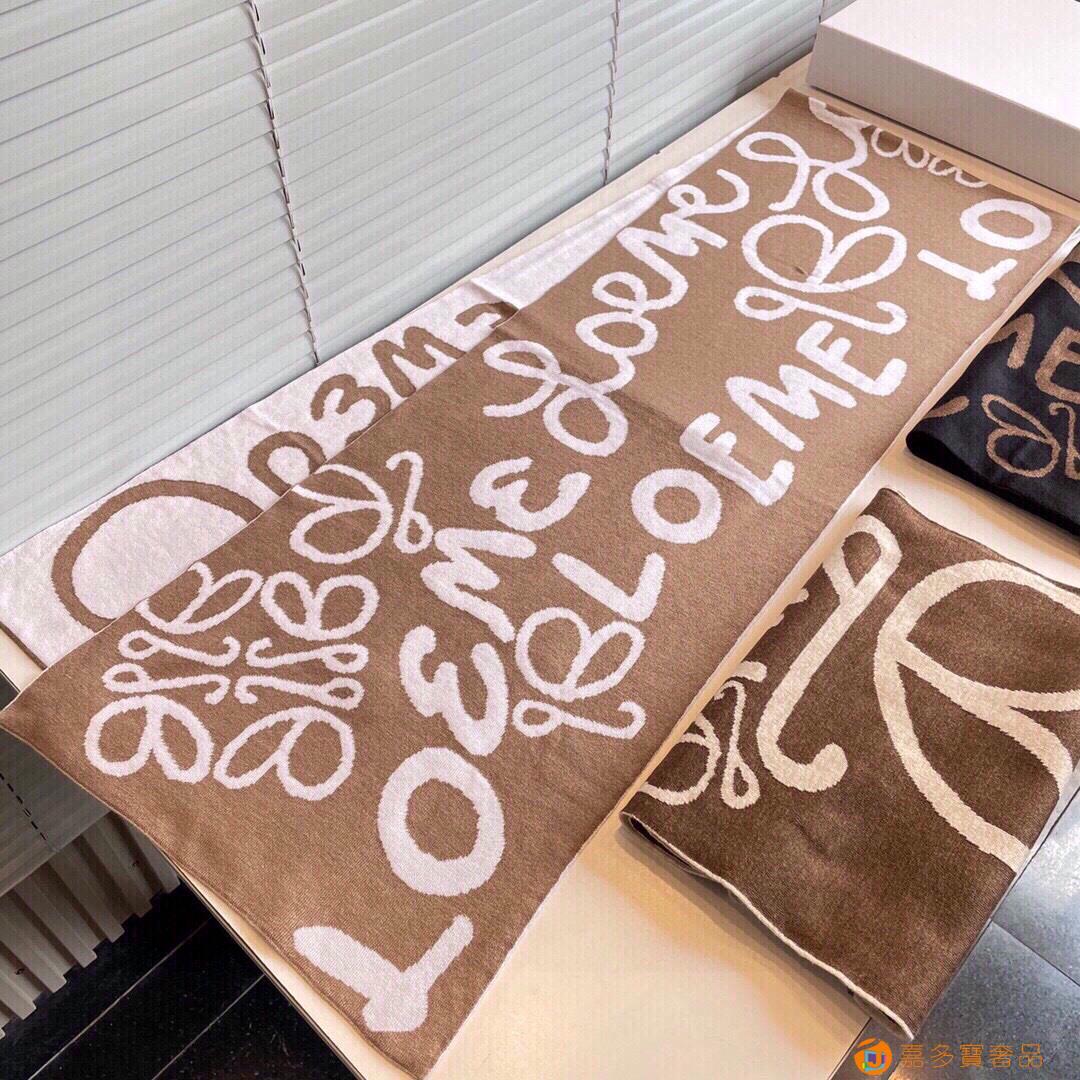 LOEWE
Loewe
LOEWE
LO
嘉多寶奢品